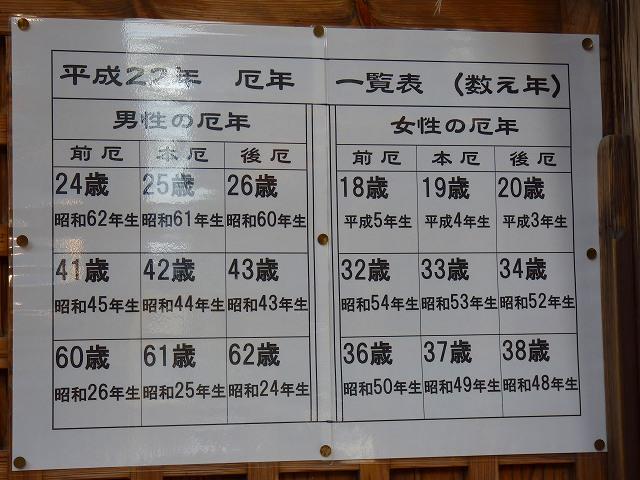 平成22年 厄年 一覧表 (数え年)
男性の厄年
前厄 本厄 後厄
24歳 25歳 26歳
昭和62年生 昭和61年生 昭和60年生
41歳 42歳 43歳
昭和45年生 昭和44年生 昭和43年生
60歳 61歳 62歳
昭和26年生 昭和25年生 昭和24年生
女性の厄年
前厄 本厄 後厄
18歳 19歳 20歳
平成5年生 平成4年生 平成3年生
32歳 33歳 34歳
昭和54年生 昭和53年生 昭和52年生
36歳 37歳 38歳
昭和50年生 昭和49年生 昭和48年生